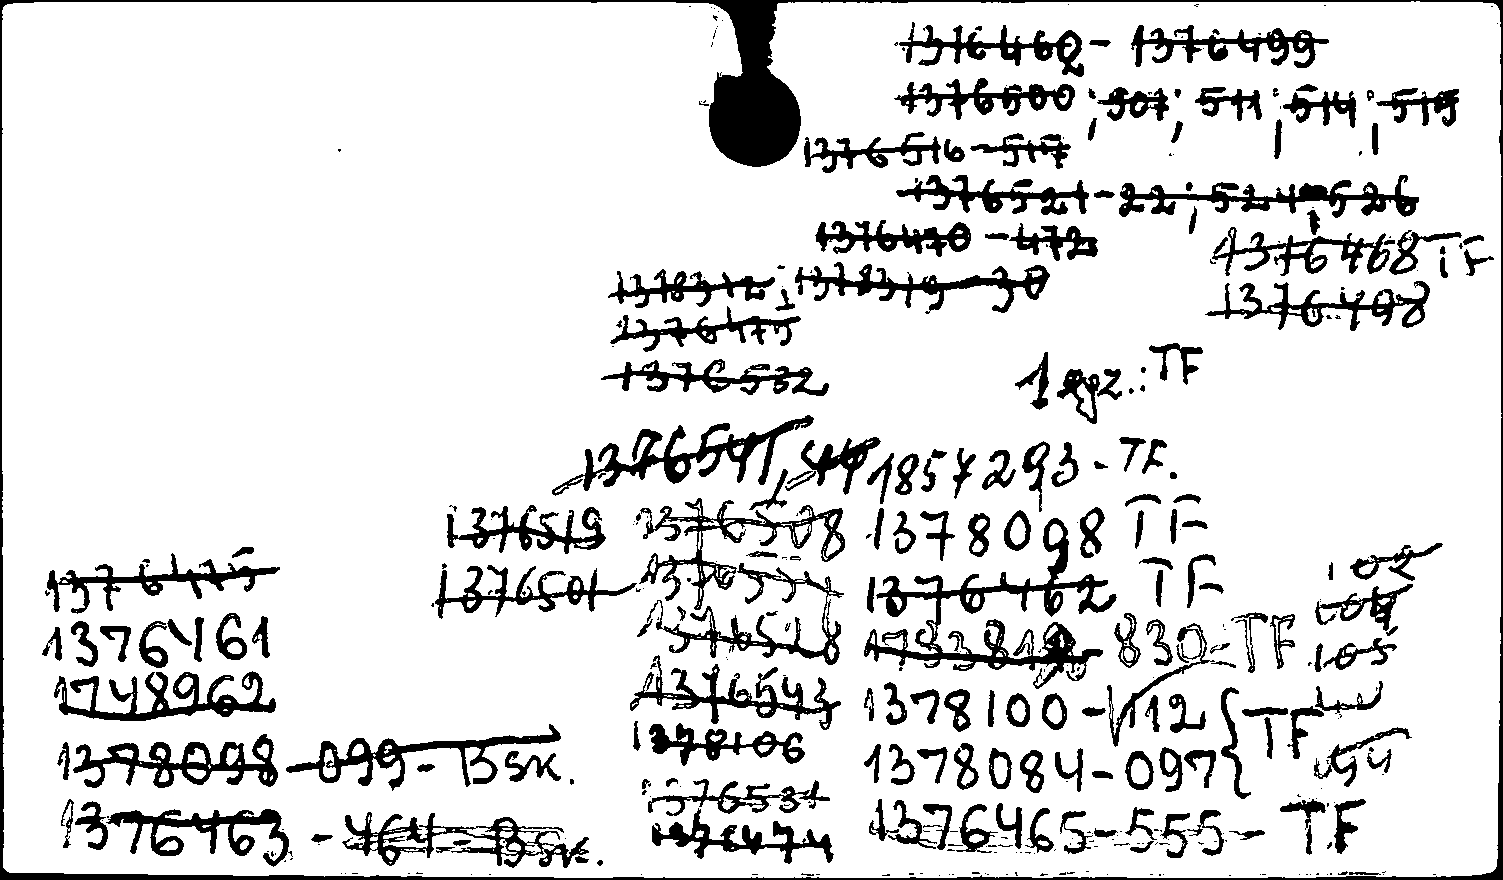 1376460 - 1376499
1376500 ; 507 ; 511 ; 514 ; 519
1376516 - 517
1376521 - 22 ; 524 ; 526
1376470 - 472
1376468 TF
1378312 ; 1378319 - 30
1376498
1376475
1376532
1 egz.: TF
1376541, 44
1857293 - TF.
1376519
1376508
1378098 TF
1376475
1376501
1376462 TF
102
104
1376461
1376528
830 - TF
105
1748962
1376543
1378100 - 112 } TF
1378098 - 099 - Bsk.
1378106
1378084 - 097
1376531
1376463 - 464 - Bsk.
1376474
1376465 - 555 - TF